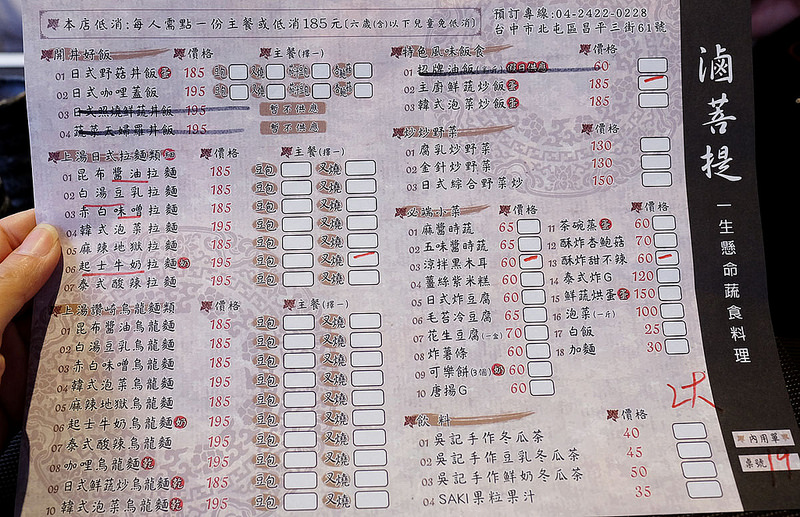 本店低消:每人需點一份主餐或低消185元(六歲(含)以下兒童免低消)
預訂專線:04-2422-0228
台中市北屯區昌平三街61號
滷菩提
一生懸命蔬食料理
開丼好飯 價格 主餐(擇一)
01 日式野菇丼飯 蛋 185
02 日式咖哩蓋飯 185
03 日式照燒鮮蔬丼飯 195 暫不供應
04 蔬菜天婦羅丼飯 195 暫不供應
上湯日式拉麵類 價格 主餐(擇一)
01 昆布醬油拉麵 185 豆包 叉燒
02 白湯豆乳拉麵 185 豆包 叉燒
03 赤白味噌拉麵 185 豆包 叉燒
04 韓式泡菜拉麵 185 豆包 叉燒
05 麻辣地獄拉麵 185 豆包 叉燒
06 起士牛奶拉麵 奶 195 豆包 叉燒
07 泰式酸辣拉麵 195 豆包 叉燒
上湯讚崎烏龍麵類 價格 主餐(擇一)
01 昆布醬油烏龍麵 185 豆包 叉燒
02 白湯豆乳烏龍麵 185 豆包 叉燒
03 赤白味噌烏龍麵 185 豆包 叉燒
04 韓式泡菜烏龍麵 185 豆包 叉燒
05 麻辣地獄烏龍麵 185 豆包 叉燒
06 起士牛奶烏龍麵 奶 195 豆包 叉燒
07 泰式酸辣烏龍麵 195 豆包 叉燒
08 咖哩烏龍麵 乾 195 豆包 叉燒
09 日式鮮蔬炒烏龍麵 乾 195 豆包 叉燒
10 韓式泡菜烏龍麵 乾 195 豆包 叉燒
特色風味飯食 價格
01 招牌油飯 假日供應 60
02 主廚鮮蔬炒飯 蛋 185
03 韓式泡菜炒飯 蛋 185
炒野菜 價格
01 腐乳炒野菜 130
02 金針炒野菜 130
03 日式綜合野菜炒 150
小菜 價格
01 麻醬時蔬 65
02 五味醬時蔬 65
03 涼拌黑木耳 60
04 薑絲紫米糕 60
05 日式炸豆腐 60
06 毛苔冷豆腐 65
07 花生豆腐(一盒) 70
08 炸薯條 60
09 可樂餅(3個) 奶 60
10 唐揚G 60
價格
11 茶碗蒸 蛋 60
12 酥炸杏鮑菇 70
13 酥炸甜不辣 60
14 泰式炸G 120
15 鮮蔬烘蛋 蛋 150
16 泡菜(一斤) 100
17 白飯 25
18 加麵 30
飲料 價格
01 吳記手作冬瓜茶 40
02 吳記手作豆乳冬瓜茶 45
03 吳記手作鮮奶冬瓜茶 50
04 SAKI果粒果汁 35
內用單
桌號 19